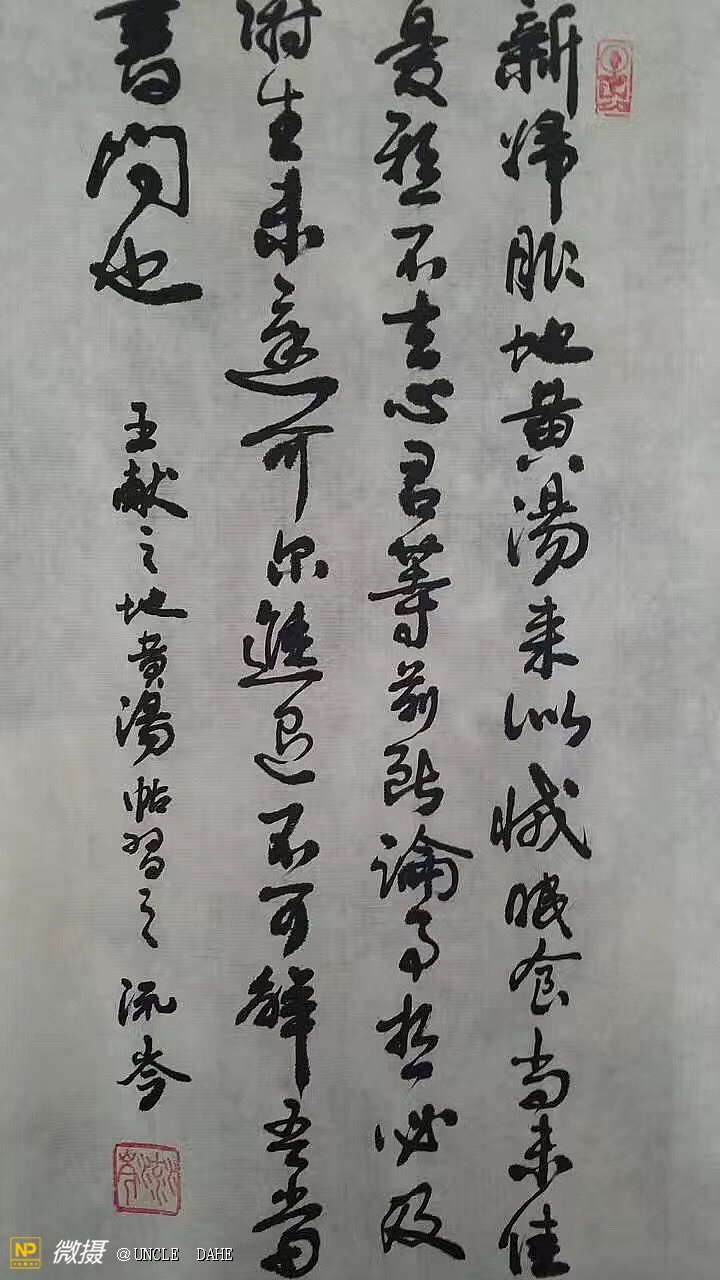 新婦服地黃湯来似减眠食尚未佳
憂懸不去心君等前所論事想必及
謝生未還可尔進退不可解吾當
書問也
王献之地黄湯帖習之 流岑
NP 微摄 @UNCLE DAHE